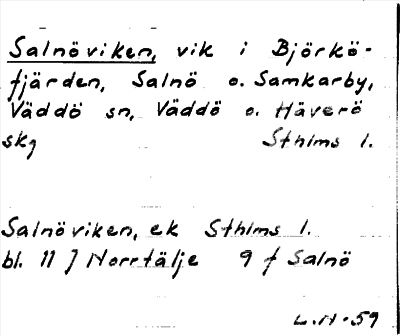 Salnöviken, vik i Björkö-
fjärden, Salnö o. Samkarby,
Väddö sn, Väddö o. Häverö
skg Sthlms l.
Salnöviken, ek Sthlms l.
bl. 11 J Norrtälje 9 f Salnö
L.H-59